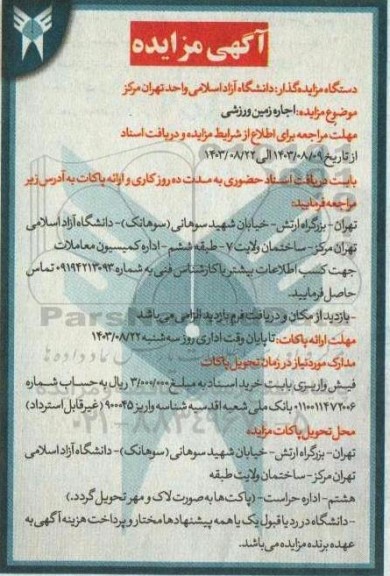 آگهی مزایده
دستگاه مزایده‌گذار: دانشگاه آزاد اسلامی واحد تهران مرکز
موضوع مزایده: اجاره زمین ورزشی
مهلت مراجعه برای اطلاع از شرایط مزایده و دریافت اسناد
از تاریخ ۱۴۰۳/۰۸/۰۹ الی ۱۴۰۳/۰۸/۲۲
بابت دریافت اسناد حضوری به مدت ده روز کاری و ارائه پاکات به آدرس زیر
مراجعه فرمایید:
تهران - بزرگراه ارتش - خیابان شهید سوهانی (سوهانک) - دانشگاه آزاد اسلامی
تهران مرکز - ساختمان ولایت ۷ - طبقه ششم - اداره کمیسیون معاملات
جهت کسب اطلاعات بیشتر با کارشناس فنی به شماره ۰۹۱۹۴۲۱۳۰۹۳ تماس
حاصل فرمایید.
- بازدید از مکان و دریافت فرم بازدید الزامی می‌باشد
مهلت ارائه پاکات: تا پایان وقت اداری روز سه‌شنبه ۱۴۰۳/۰۸/۲۲
مدارک موردنیاز در زمان تحویل پاکات
فیش واریزی بابت خرید اسناد به مبلغ ۳/۰۰۰/۰۰۰ ریال به حساب شماره
۰۱۱۰۰۱۱۴۷۲۰۰۶ بانک ملی شعبه اقدسیه شناسه واریز ۹۰۰۰۴۵ (غیرقابل استرداد)
محل تحویل پاکات مزایده
تهران - بزرگراه ارتش - خیابان شهید سوهانی (سوهانک) - دانشگاه آزاد اسلامی
تهران مرکز - ساختمان ولایت طبقه
هشتم - اداره حراست - (پاکت‌ها به صورت لاک و مهر تحویل گردد.)
- دانشگاه در رد یا قبول یک یا همه پیشنهادها مختار و پرداخت هزینه آگهی به
عهده برنده مزایده می‌باشد.